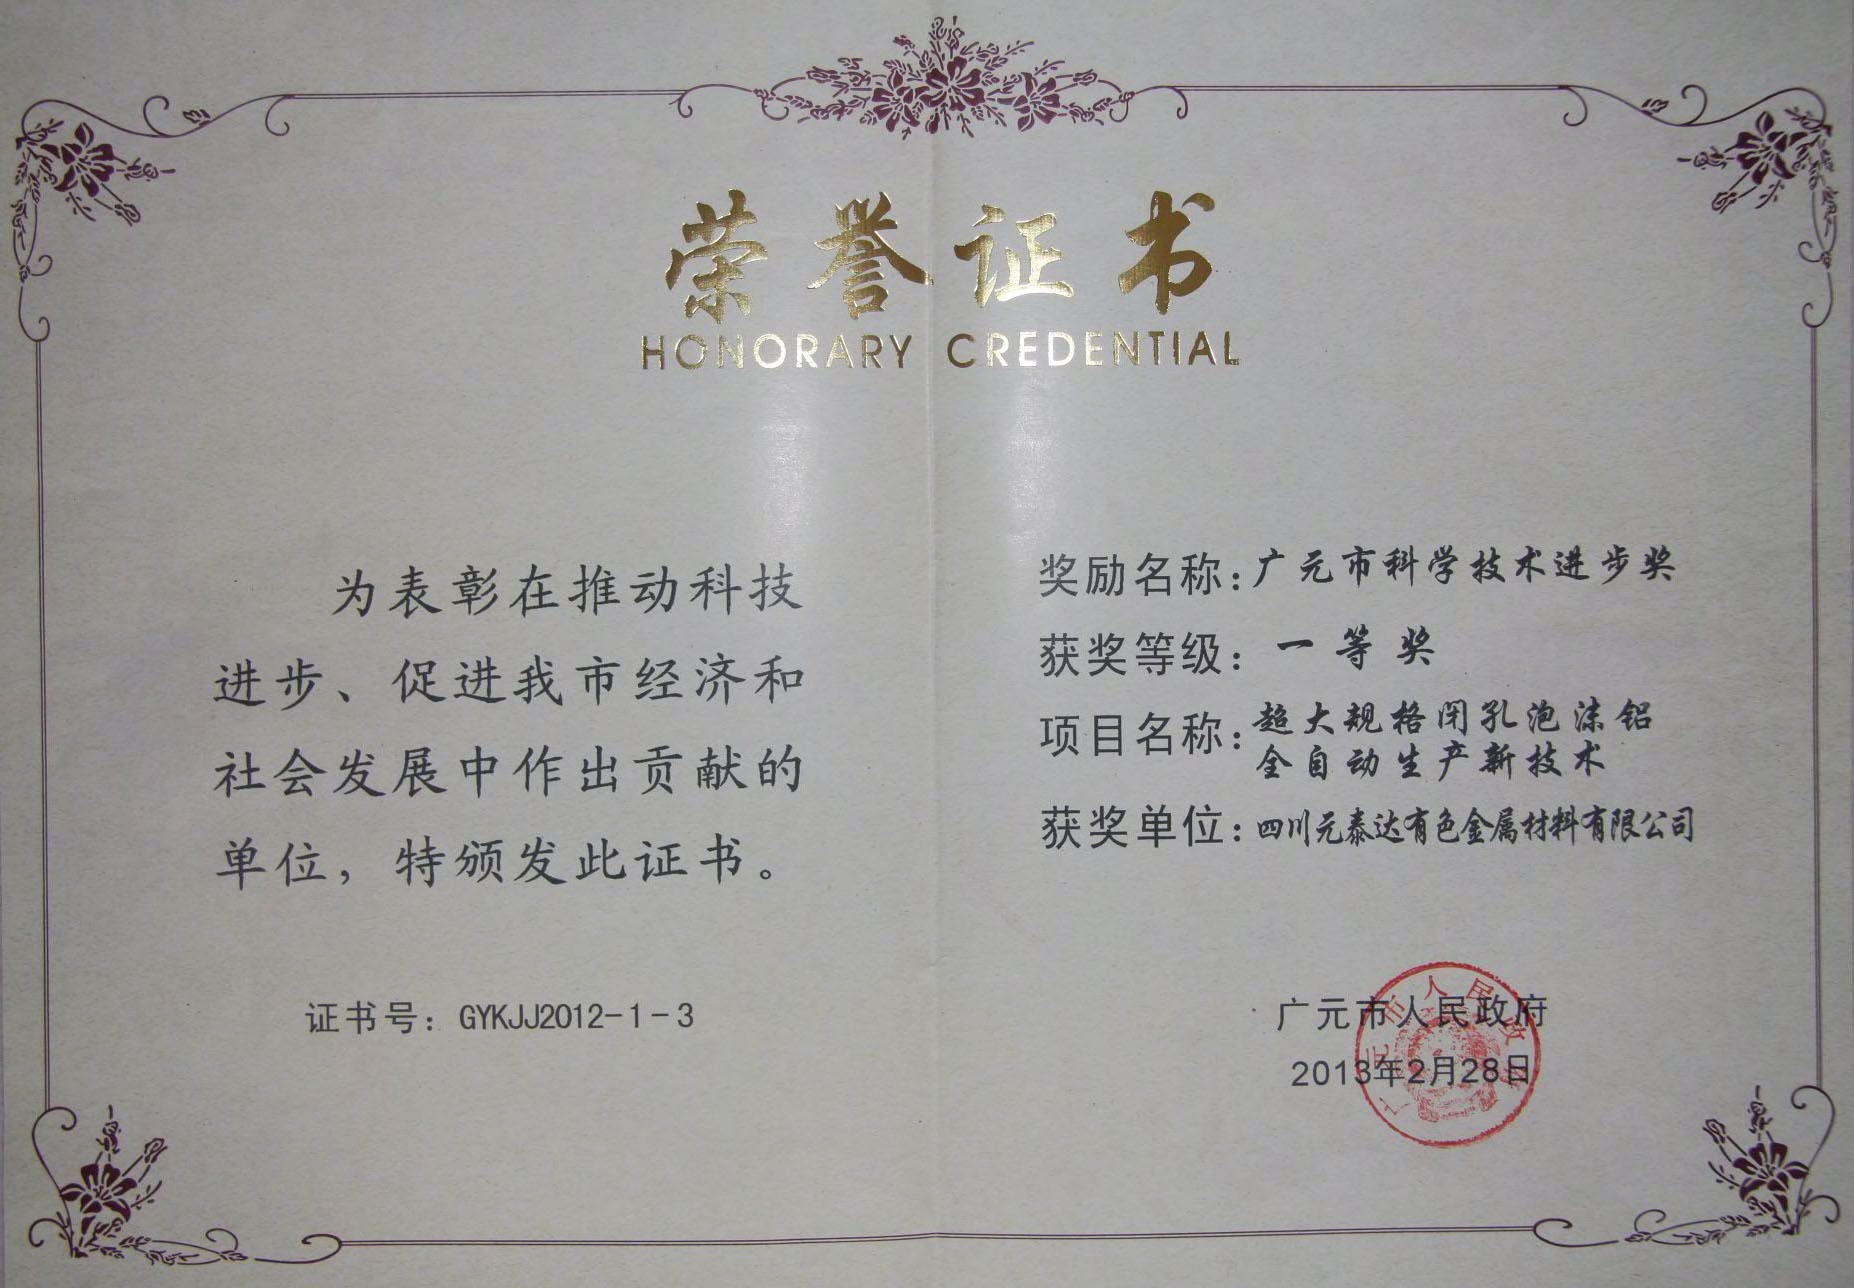 荣誉证书
HONORARY CREDENTIAL
为表彰在推动科技
进步、促进我市经济和
社会发展中作出贡献的
单位，特颁发此证书。
证书号：GYKJJ2012-1-3
奖励名称：广元市科学技术进步奖
获奖等级：一等奖
项目名称：超大规格闭孔泡沫铝
全自动生产新技术
获奖单位：四川元泰达有色金属材料有限公司
广元市人民政府
2013年2月28日
广元市人民政府